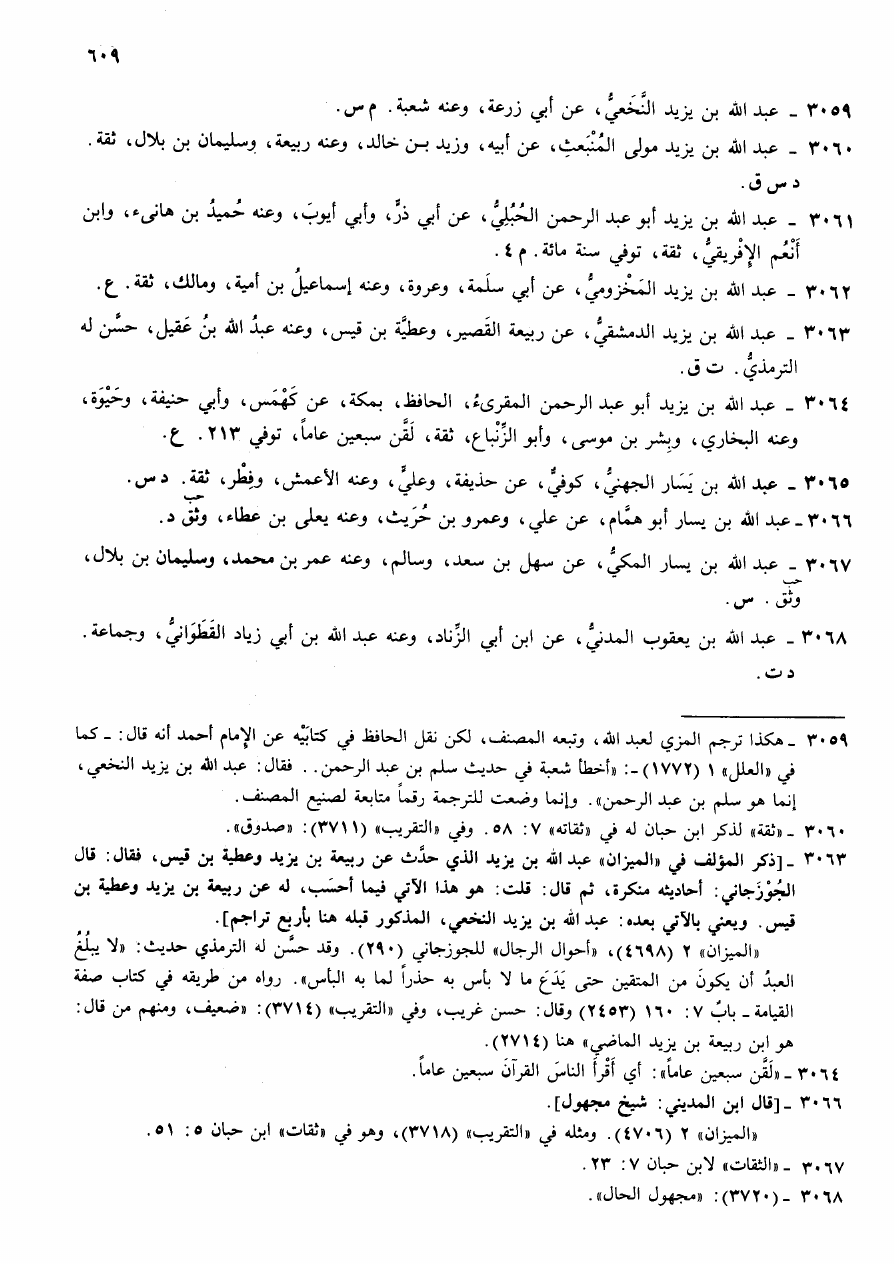 ٦٠٩
٣٠٥٩ ـ عبد الله بن يزيد النَّخَعيُّ، عن أبي زرعة، وعنه شعبة. م س.
٣٠٦٠ ـ عبد الله بن يزيد مولى المُنْبَعثِ، عن أبيه، وزيد بـن خالد، وعنه ربيعة، وسليمان بن بلال، ثقة.
د س ق.
٣٠٦١ ـ عبد الله بن يزيد أبو عبد الرحمن الحُبُليُّ، عن أبي ذرٍّ، وأبي أيوبَ، وعنه حُميدُ بن هانىء، وابن
أَنْعُم الإفْريقيُّ، ثقة، توفي سنة مائة. م ٤.
٣٠٦٢ ـ عبد الله بن يزيد المَخْزوميُّ، عن أبي سلَمة، وعروة، وعنه إسماعيلُ بن أمية، ومالك، ثقة. ع.
٣٠٦٣ ـ عبد الله بن يزيد الدمشقيُّ، عن ربيعة القَصير، وعطيَّة بن قيس، وعنه عبدُ الله بنُ عَقيل، حسَّن له
الترمذيُّ. ت ق.
٣٠٦٤ ـ عبد الله بن يزيد أبو عبد الرحمن المقرىءُ، الحافظ، بمكة، عن كَهْمَس، وأبي حنيفة، وحَيْوَة،
وعنه البخاري، وبِشر بن موسى، وأبو الزِّنْباع، ثقة، لَقَّن سبعين عاماً، توفي ٢١٣. ع.
٣٠٦٥ ـ عبد الله بن يَسَار الجهنيُّ، كوفيٌّ، عن حذيفة، وعليٍّ، وعنه الأعمش، وفِطْر، ثقة. د س.
٣٠٦٦ ـ عبد الله بن يسار أبو همَّام، عن علي، وعمرو بن حُرَيث، وعنه يعلى بن عطاء، وثق حب د.
٣٠٦٧ ـ عبد الله بن يسار المكيُّ، عن سهل بن سعد، وسالم، وعنه عمر بن محمد، وسليمان بن بلال،
وثق حب. س.
٣٠٦٨ ـ عبد الله بن يعقوب المدنيُّ، عن ابن أبي الزِّناد، وعنه عبد الله بن أبي زياد القَطَوَانيُّ، وجماعة.
د ت.
٣٠٥٩ ـ هكذا ترجم المزي لعبد الله، وتبعه المصنف، لكن نقل الحافظ في كتابَيْه عن الإمام أحمد أنه قال: ـ كما
في «العلل» ١ (١٧٧٢) ـ: «أخطأ شعبة في حديث سلم بن عبد الرحمن.. فقال: عبد الله بن يزيد النخعي،
إنما هو سلم بن عبد الرحمن». وإنما وضعت للترجمة رقماً متابعة لصنيع المصنف.
٣٠٦٠ ـ «ثقة» لذكر ابن حبان له في «ثقاته» ٧: ٥٨. وفي «التقريب» (٣٧١١): «صدوق».
٣٠٦٣ ـ [ذكر المؤلف في «الميزان» عبد الله بن يزيد الذي حدَّث عن ربيعة بن يزيد وعطية بن قيس، فقال: قال
الجُوْزَجاني: أحاديثه منكرة، ثم قال: قلت: هو هذا الآتي فيما أحسَب، له عن ربيعة بن يزيد وعطية بن
قيس. ويعني بالآتي بعده: عبد الله بن يزيد النخعي، المذكور قبله هنا بأربع تراجم].
«الميزان» ٢ (٤٦٩٨)، «أحوال الرجال» للجوزجاني (٢٩٠). وقد حسَّن له الترمذي حديث: «لا يبلُغُ
العبدُ أن يكونَ من المتقين حتى يَدَعَ ما لا بأس به حذراً لما به البأس». رواه من طريقه في كتاب صفة
القيامة ـ بابٌ ٧: ١٦٠ (٢٤٥٣) وقال: حسن غريب، وفي «التقريب» (٣٧١٤): «ضعيف، ومنهم من قال:
هو ابن ربيعة بن يزيد الماضي» هنا (٢٧١٤).
٣٠٦٤ ـ «لَقَّن سبعين عاماً»: أي أَقْرأَ الناسَ القرآنَ سبعين عاماً.
٣٠٦٦ ـ [قال ابن المديني: شيخ مجهول].
«الميزان» ٢ (٤٧٠٦). ومثله في «التقريب» (٣٧١٨)، وهو في «ثقات» ابن حبان ٥: ٥١.
٣٠٦٧ ـ «الثقات» لابن حبان ٧: ٢٣.
٣٠٦٨ ـ (٣٧٢٠): «مجهول الحال».